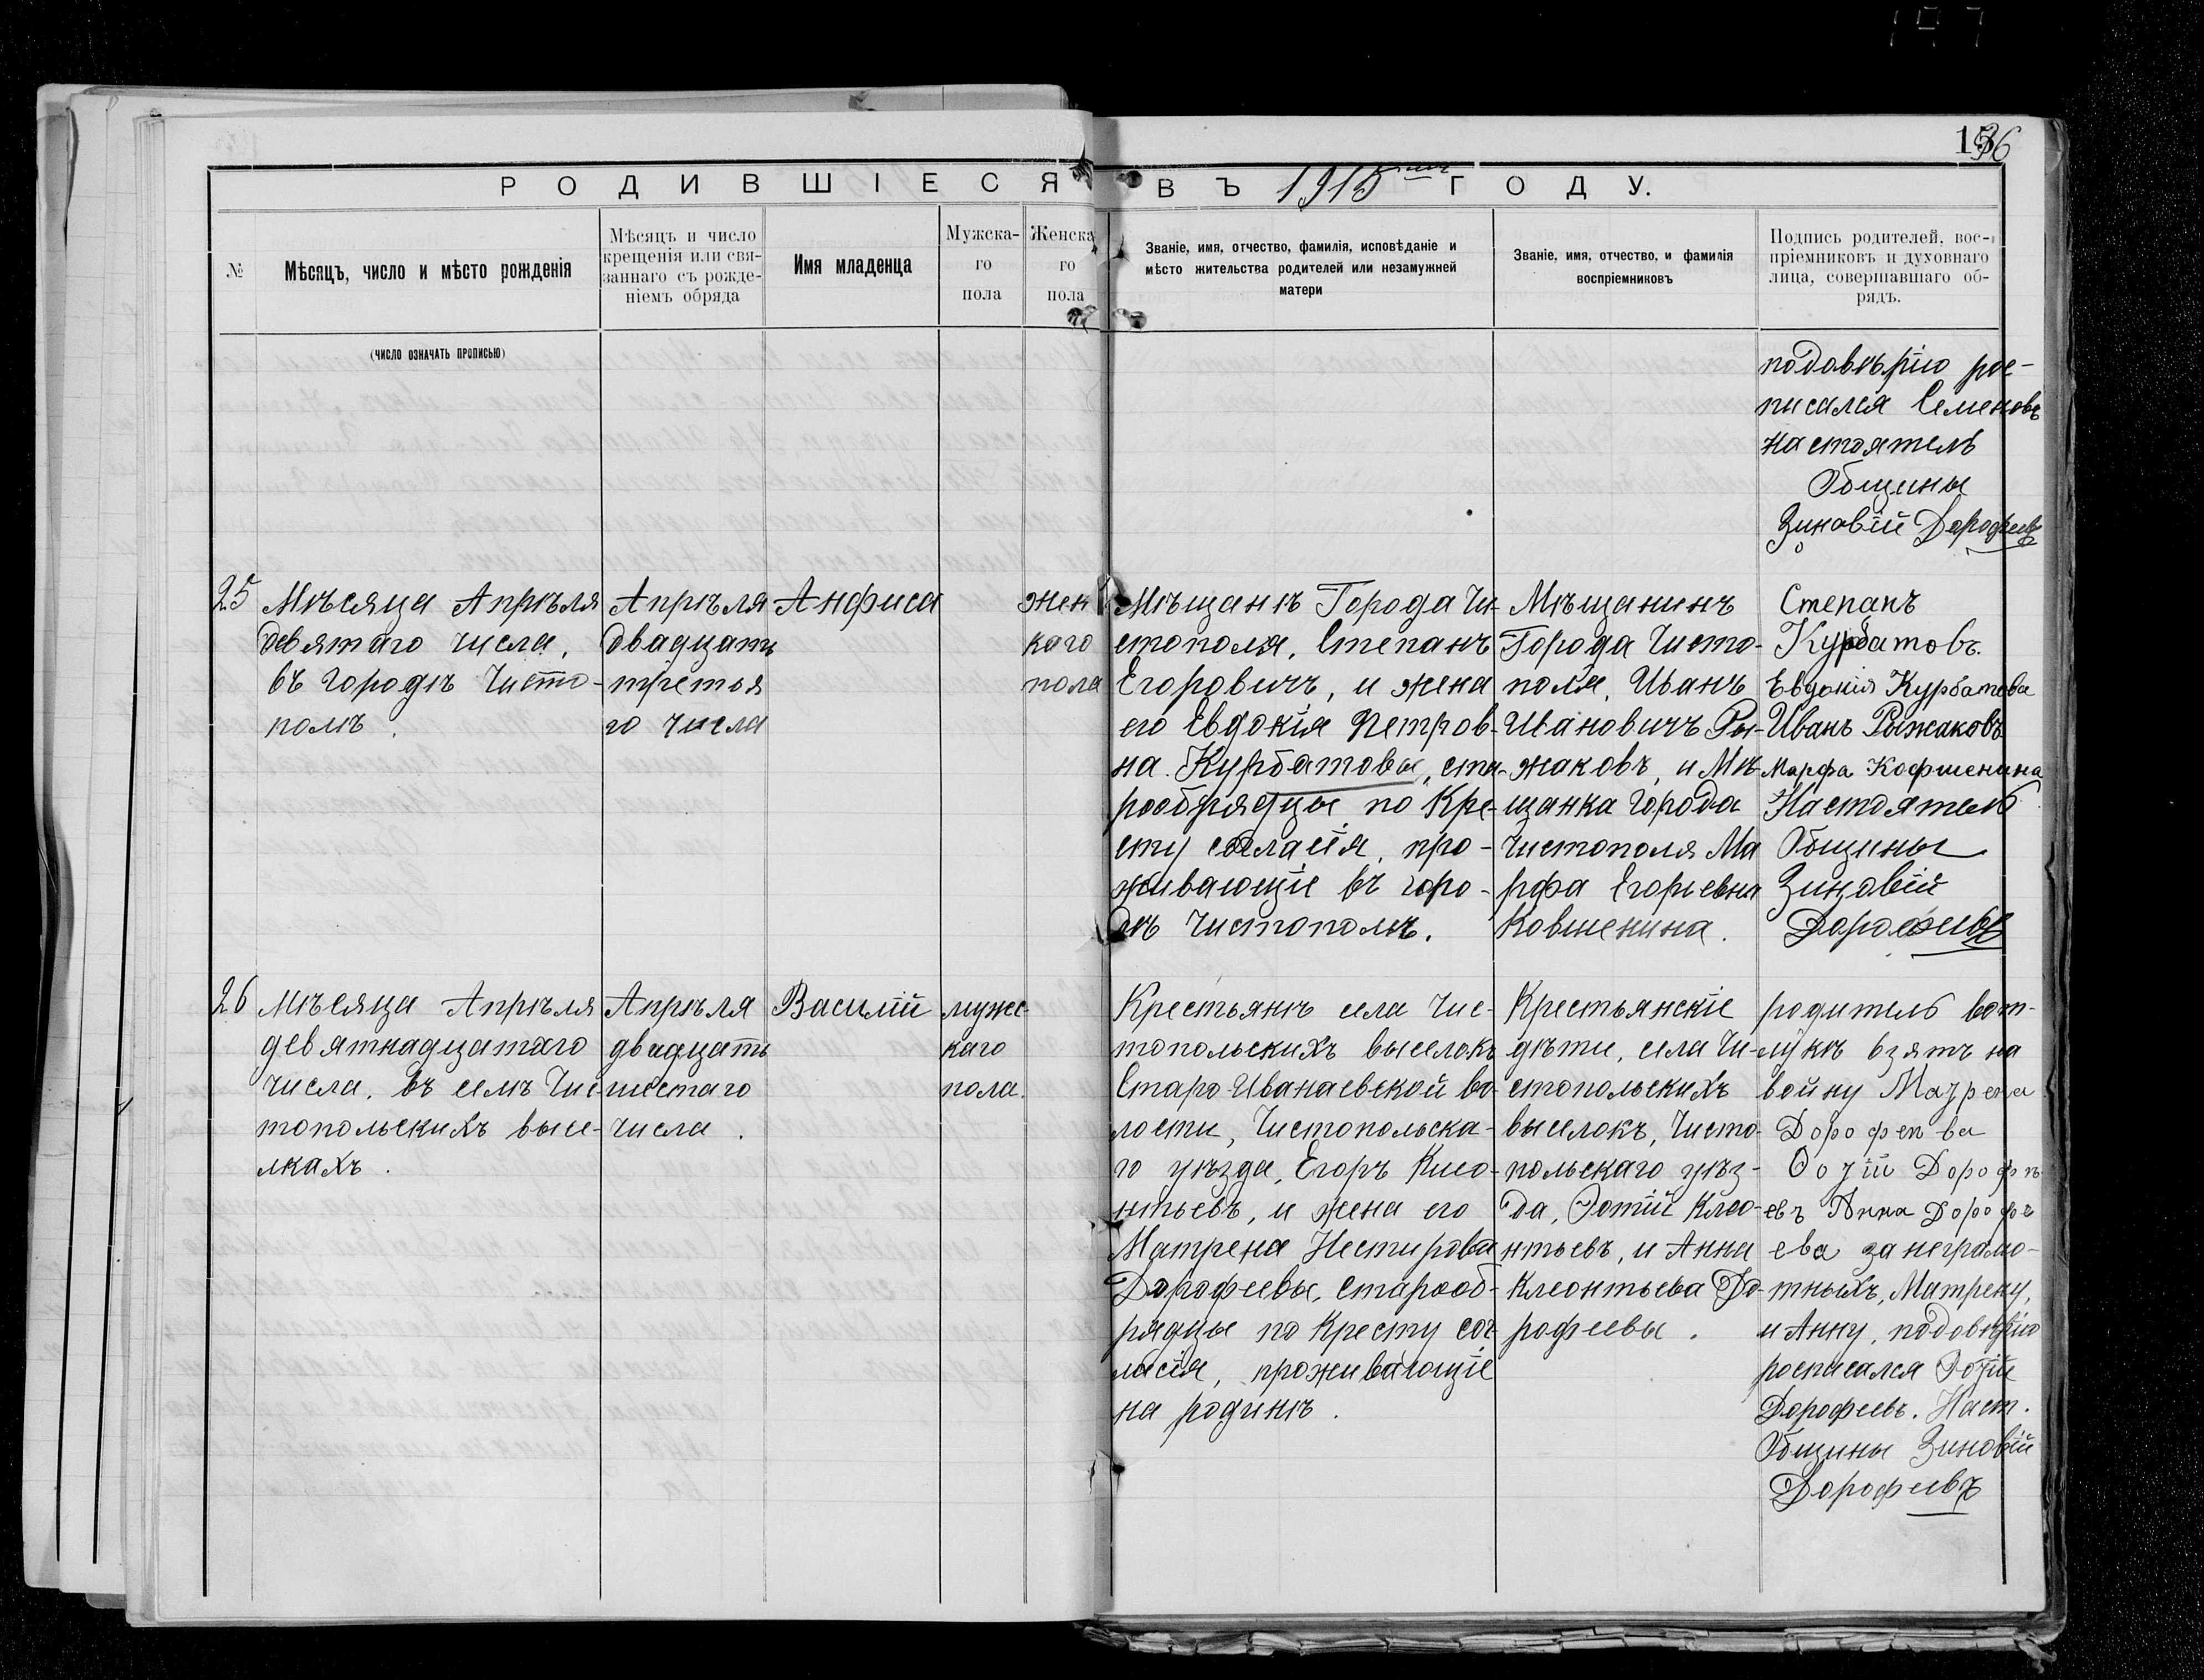 136
РОДИВШІЕСЯ ВЪ 1915мъ ГОДУ.
№
Мѣсяцъ, число и мѣсто рожденія
Мѣсяцъ и число
крещенія или свя-
заннаго съ рожде-
ніемъ обряда
Имя младенца
Мужска-
го
пола
Женска
го
пола
Званіе, имя, отчество, фамилія, исповѣданіе и
мѣсто жительства родителей или незамужней
матери
Званіе, имя, отчество, и фамилія
воспріемниковъ
Подпись родителей, вос-
пріемниковъ и духовнаго
лица, совершавшаго об-
рядъ.
(число означать прописью)
подовѣрію рос-
писался Семеновъ
настоятель
Общины
Зиновій Дорофеевъ
25
Мѣсяца Апрѣля
девятаго числа,
въ городѣ Чисто-
полѣ.
Апрѣля
двадцать
третья
го числа
Анфиса
жен
каго
пола
Мѣщанѣ Города Чи-
стополя, Степанъ
Егоровичъ, и жена
его Евдокія Петров-
на Курбатовы, ста-
рообрядцы по Кре-
сту согласія, про-
живающіе въ горо-
дѣ Чистополѣ.
Мѣщанинъ
Города Чисто-
поля, Иванъ
Ивановичъ Ры-
жаковъ, и Мѣ-
щанка города
Чистополя Ма
рфа Егорьевна
Ковшенина.
Степанъ
Курбатовъ.
Евдокія Курбатова
Иванъ Рыжаковъ
Марфа Кофшенина
Настоятель
Общины
Зиновій
Дорофеевъ
26
Мѣсяца Апрѣля
девятнадцатаго
числа, въ селѣ Чис-
топольскихъ высе-
лкахъ.
Апрѣля
двадцать
шестаго
числа.
Василій
мужес-
каго
пола.
Крестьянѣ села Чис-
топольскихъ выселокъ
Старо-Иванаевской во-
лости, Чистопольска-
го уѣзда, Егоръ Клео-
нтьевъ, и жена его
Матрена Нестирова
Дорофеевы, старооб-
рядцы по Кресту сог-
ласія, проживающіе
на родинѣ.
Крестьянскіе
дѣти, села Чи-
стопольскихъ
выселокъ, Чисто-
польскаго уѣз-
да, Фотій Клео-
нтьевъ, и Анна
Клеонтьева До-
рофеевы.
родитель вот-
лукѣ взятъ на
войну Матрена
Дорофеева
Фотій Дорофѣ-
евъ Анна Дорофе
ева за неграмо-
тныхъ, Матрену,
и Анну, подовѣрію
росписался Фотій
Дорофеевъ. Наст.
Общины Зиновій
Дорофеевъ